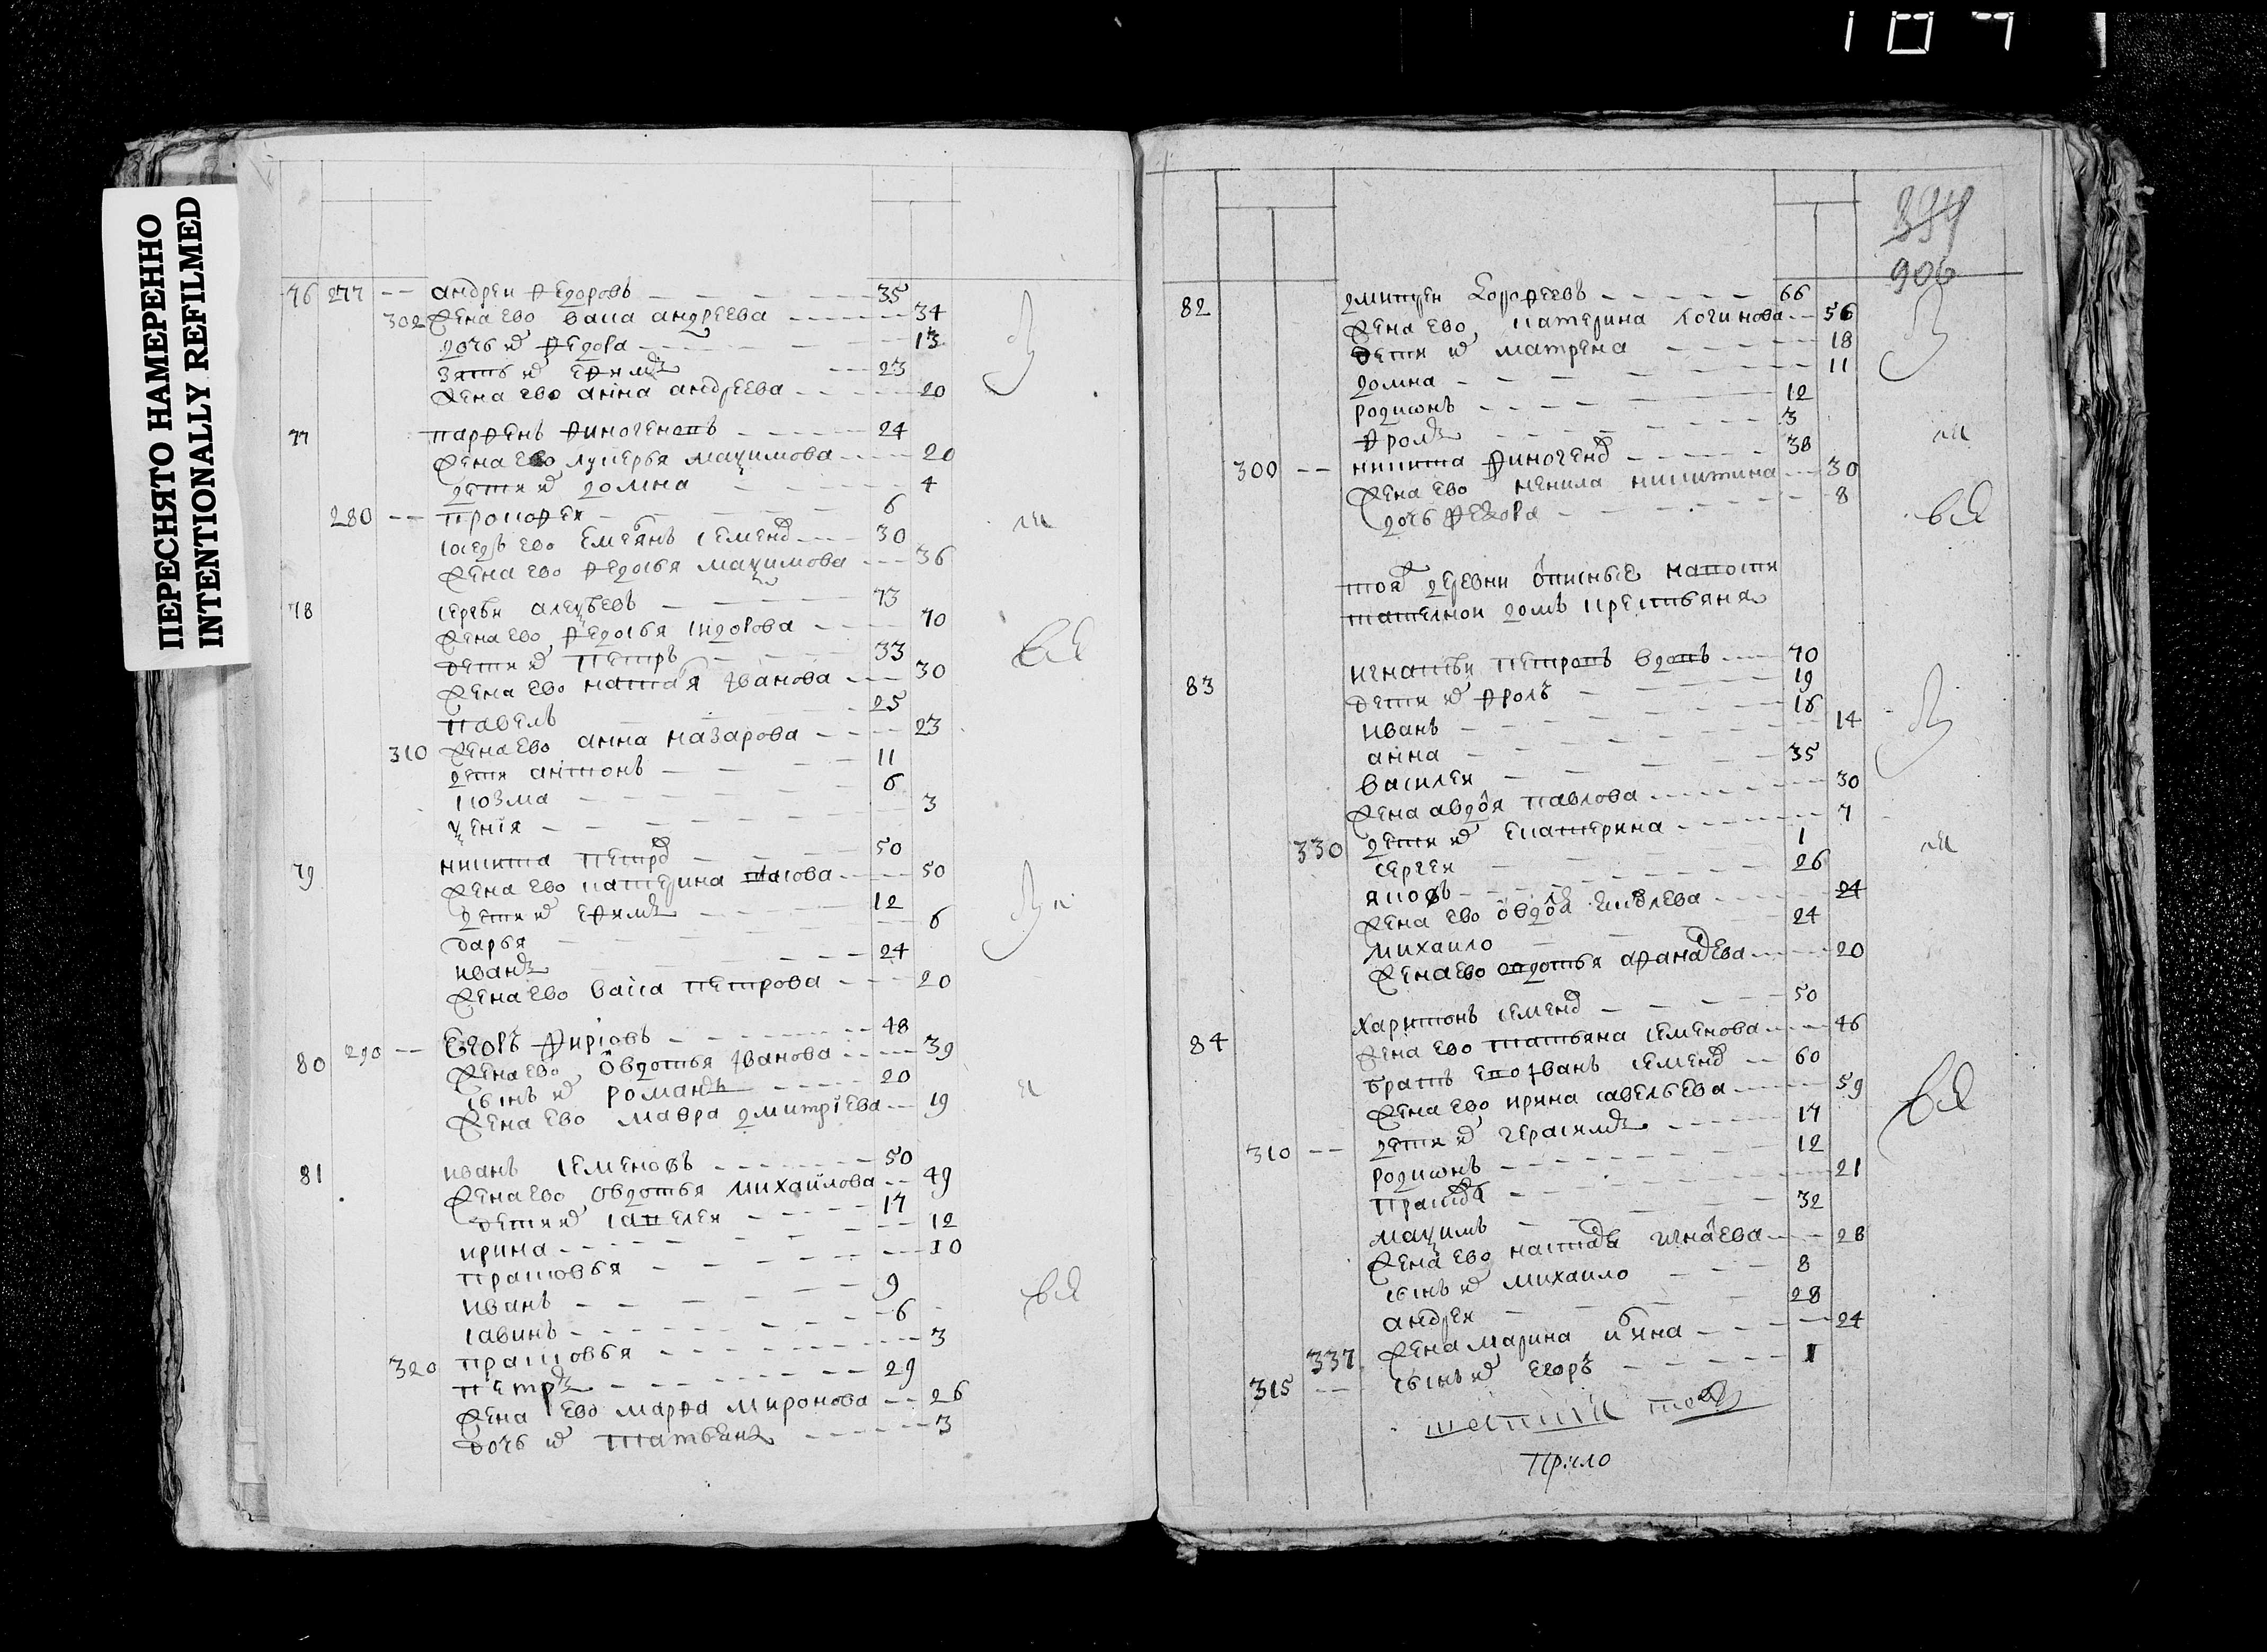 ПЕРЕСНЯТО НАМЕРЕННО
INTENTIONALLY REFILMED
76 277 -- андреи федоровъ 35
302 жена ево васа андреева 34
дочь их федора 13
зять их ефимъ 23
жена ево анна андреева 20
77 парфенъ финогеновъ 24
жена ево лукерья маѯимова 20
дети их домна 4
280 -- прокофеи 6
ево емелянъ семенов 30
жена ево федосья маѯимова 36
78 сергѣи алеѯѣевъ 73
жена ево федосья сидорова 70
дети их петръ 33
жена ево настасья иванова 30
павелъ 25
310 жена ево анна назарова 23
дети антонъ 11
козма 6
ѯения 3
79 никита петров 50
жена ево катерина власова 50
дети их ефимъ 12
дарья 6
иванъ 24
жена ево васа петрова 20
80 290 -- егоръ фирсовъ 48
жена ево овдотья иванова 39
сынъ их романъ 20
жена ево мавра дмитриева 19
81 иванъ семеновъ 50
жена ево овдотья михаилова 49
дети их савелеи 17
ирина 12
прасковья 10
иванъ 9
савинъ 6
320 прасковья 3
петръ 29
жена ево марфа миронова 26
дочь их татьяна 3
394
906
82 дмитреи дорофеевъ 66
жена ево катерина логинова 56
дети их матрена 18
домна 11
родионъ 12
фролъ 3
300 -- никита финогенов 38
жена ево ненила никитина 30
дочь федора 8
тоя деревни описные
домъ крестьяня
83 игнатѣи петровъ вдовъ 70
дети их фролъ 19
иванъ 16
анна 14
василеи 35
жена авдотья павлова 30
330 дети их екатерина 7
сергеи 1
яковъ 26
жена ево овдотья яковлева 24
михаило 24
жена ево овдотья афанасева 20
84 харитонъ семенов 50
жена ево татьяна семенова 46
братъ ево иванъ семенов 60
жена ево ирина савельева 59
310 -- дети их герасимъ 17
родионъ 12
прасковья 21
маѯимъ 32
жена ево настасья игнатева 28
сынъ их михаило 8
андреи 28
337 жена марина 24
315 -- сынъ их егоръ 1